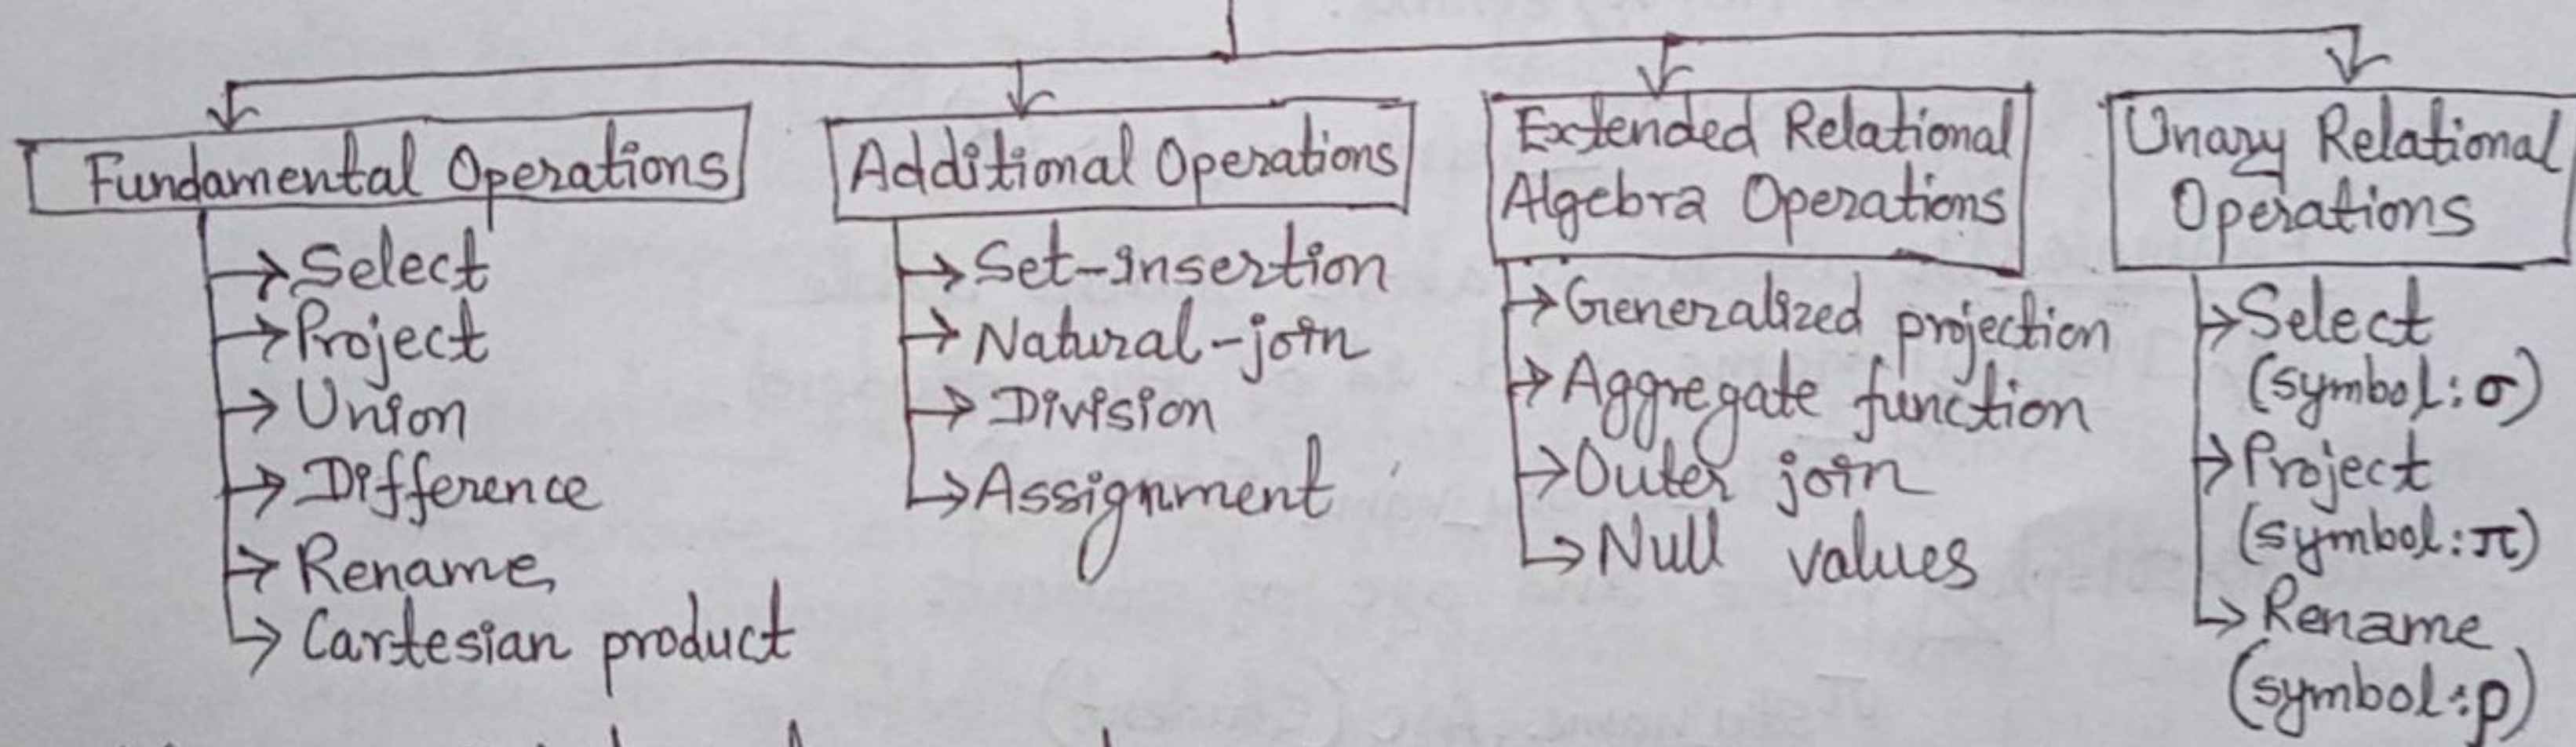 Fundamental Operations
→ Select
→ Project
→ Union
→ Difference
→ Rename
→ Cartesian product
Additional Operations
→ Set-Insertion
→ Natural-join
→ Division
→ Assignment
Extended Relational
Algebra Operations
→ Generalized projection
→ Aggregate function
→ Outer join
→ Null values
Unary Relational
Operations
→ Select
(symbol: σ)
→ Project
(symbol: π)
→ Rename
(symbol: ρ)